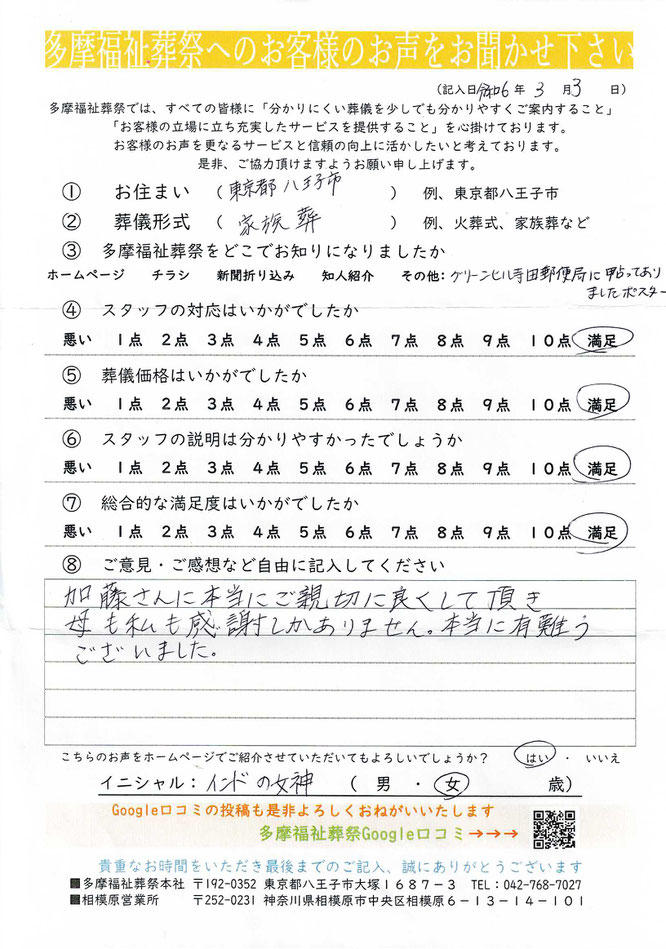 多摩福祉葬祭へのお客様のお声をお聞かせ下さい
（記入日 令和6 年 3 月 3 日）
多摩福祉葬祭では、すべての皆様に「分かりにくい葬儀を少しでも分かりやすくご案内すること」
「お客様の立場に立ち充実したサービスを提供すること」を心掛けております。
お客様のお声を更なるサービスと信頼の向上に活かしたいと考えております。
是非、ご協力頂けますようお願い申し上げます。
① お住まい （東京都八王子市） 例、東京都八王子市
② 葬儀形式 （家族葬） 例、火葬式、家族葬など
③ 多摩福祉葬祭をどこでお知りになりましたか
ホームページ チラシ 新聞折り込み 知人紹介 その他：グリーンヒル寺田郵便局に貼ってあり
ましたポスター
④ スタッフの対応はいかがでしたか
悪い 1点 2点 3点 4点 5点 6点 7点 8点 9点 10点 満足
⑤ 葬儀価格はいかがでしたか
悪い 1点 2点 3点 4点 5点 6点 7点 8点 9点 10点 満足
⑥ スタッフの説明は分かりやすかったでしょうか
悪い 1点 2点 3点 4点 5点 6点 7点 8点 9点 10点 満足
⑦ 総合的な満足度はいかがでしたか
悪い 1点 2点 3点 4点 5点 6点 7点 8点 9点 10点 満足
⑧ ご意見・ご感想など自由に記入してください
加藤さんに本当にご親切に良くして頂き
母も私も感謝しかありません。本当に有難う
ございました。
こちらのお声をホームページでご紹介させていただいてもよろしいでしょうか？ はい ・ いいえ
イニシャル：インドの女神 （ 男 ・ 女 歳）
Google口コミの投稿も是非よろしくおねがいいたします
多摩福祉葬祭Google口コミ→→→
貴重なお時間をいただき最後までのご記入、誠にありがとうございます
■多摩福祉葬祭本社 〒192-0352 東京都八王子市大塚１６８７－３ TEL：042-768-7027
■相模原営業所 〒252-0231 神奈川県相模原市中央区相模原６－１３－１４－１０１